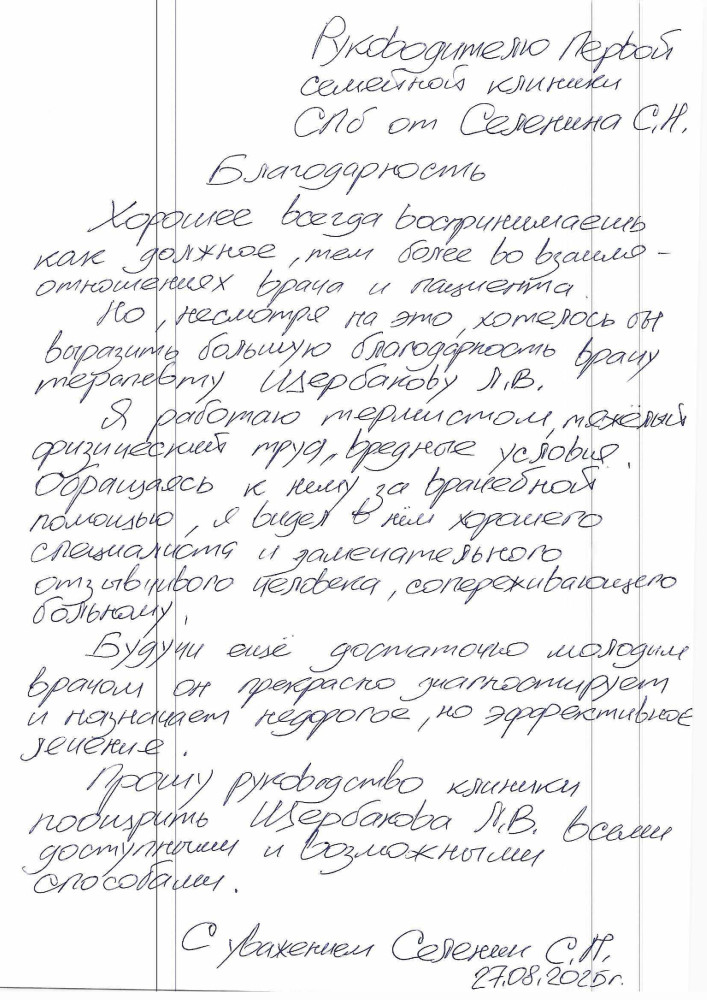 Руководителю Первой
семейной клиники
СПб от Селенина С.Н.
Благодарность
Хорошее всегда воспринимаешь
как должное, тем более во взаимо-
отношениях врача и пациента.
Но, несмотря на это, хотелось бы
выразить большую благодарность врачу
терапевту Щербакову Л.В.
Я работаю термистом, тяжёлый
физический труд, вредные условия.
Обращаясь к нему за врачебной
помощью, я видел в нём хорошего
специалиста и замечательного
отзывчивого человека, сопереживающего
больному.
Будучи ещё достаточно молодым
врачом он прекрасно диагностирует
и назначает недорогое, но эффективное
лечение.
Прошу руководство клиники
поощрить Щербакова Л.В. всеми
доступными и возможными
способами.
С уважением Селенин С.Н.
27.08.2025г.